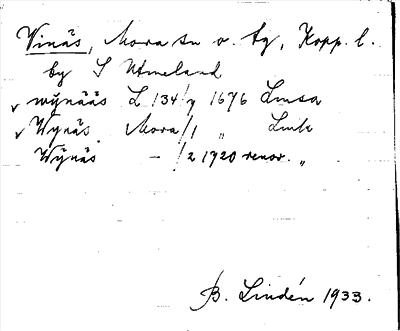 Vinäs, Mora sn o. tg, Kopp. l.
by S Utmeland
v wÿnääs L 134/7 1676 Lmsa
v Wynäs Mora/1 " Lmk
Wÿnäs — /2 1720 renov. "
B. Lindén 1933.